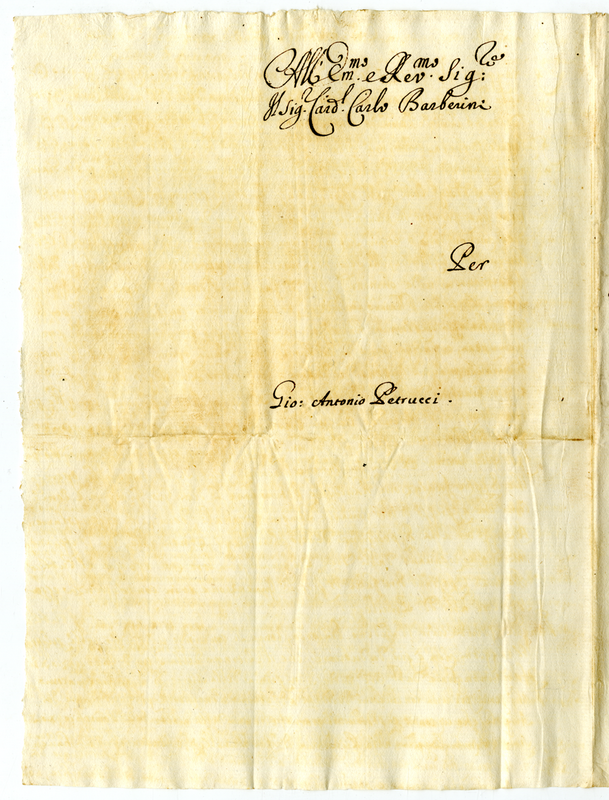 All' Em.mo e Rev.mo Sig:re
Il Sig.r Card.l Carlo Barberini
Per
Gio: Antonio Petrucci.